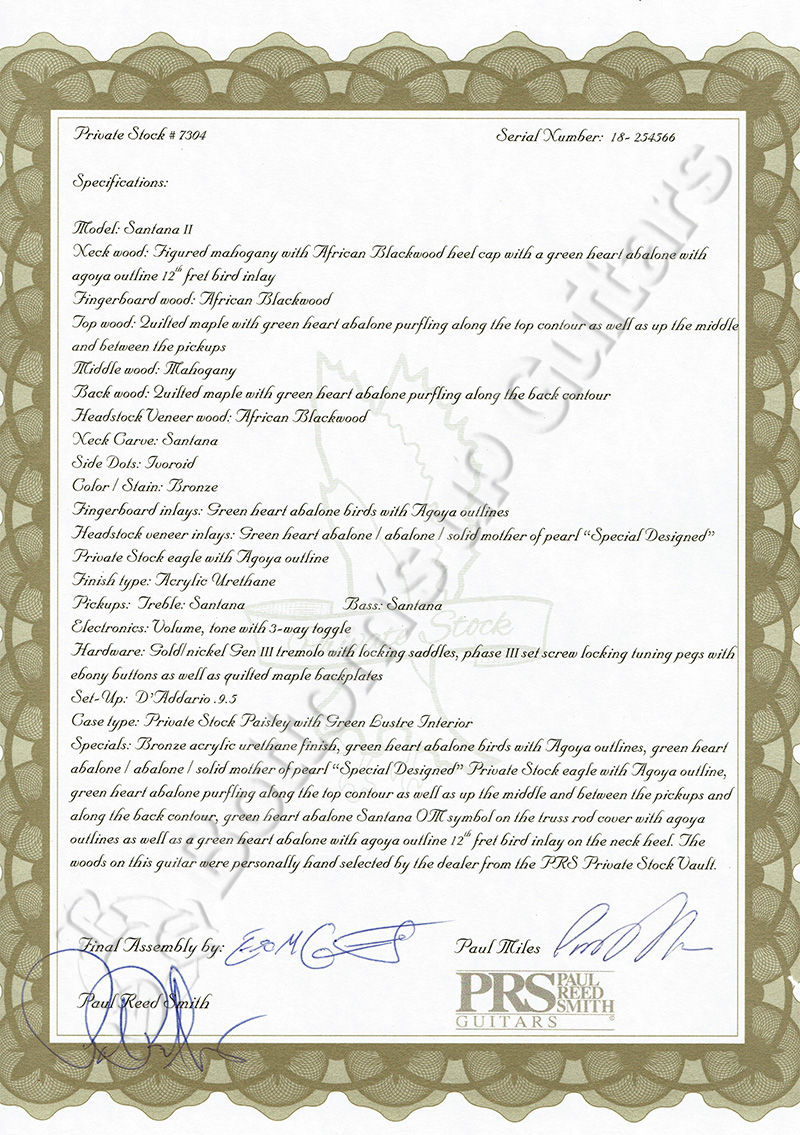 Private Stock # 7304 Serial Number: 18- 254566
Specifications:
Model: Santana II
Neck wood: Figured mahogany with African Blackwood heel cap with a green heart abalone with
agoya outline 12th fret bird inlay
Fingerboard wood: African Blackwood
Top wood: Quilted maple with green heart abalone purfling along the top contour as well as up the middle
and between the pickups
Middle wood: Mahogany
Back wood: Quilted maple with green heart abalone purfling along the back contour
Headstock Veneer wood: African Blackwood
Neck Carve: Santana
Side Dots: Ivoroid
Color / Stain: Bronze
Fingerboard inlays: Green heart abalone birds with Agoya outlines
Headstock veneer inlays: Green heart abalone / abalone / solid mother of pearl “Special Designed”
Private Stock eagle with Agoya outline
Finish type: Acrylic Urethane
Pickups: Treble: Santana Bass: Santana
Electronics: Volume, tone with 3-way toggle
Hardware: Gold/nickel Gen III tremolo with locking saddles, phase III set screw locking tuning pegs with
ebony buttons as well as quilted maple backplates
Set-Up: D'Addario .9.5
Case type: Private Stock Paisley with Green Lustre Interior
Specials: Bronze acrylic urethane finish, green heart abalone birds with Agoya outlines, green heart
abalone / abalone / solid mother of pearl “Special Designed” Private Stock eagle with Agoya outline,
green heart abalone purfling along the top contour as well as up the middle and between the pickups and
along the back contour, green heart abalone Santana OM symbol on the truss rod cover with agoya
outlines as well as a green heart abalone with agoya outline 12th fret bird inlay on the neck heel. The
woods on this guitar were personally hand selected by the dealer from the PRS Private Stock Vault.
Final Assembly by:
Paul Miles
Paul Reed Smith
PRS PAUL REED SMITH
GUITARS
Private Stock
Bottom's Up Guitars